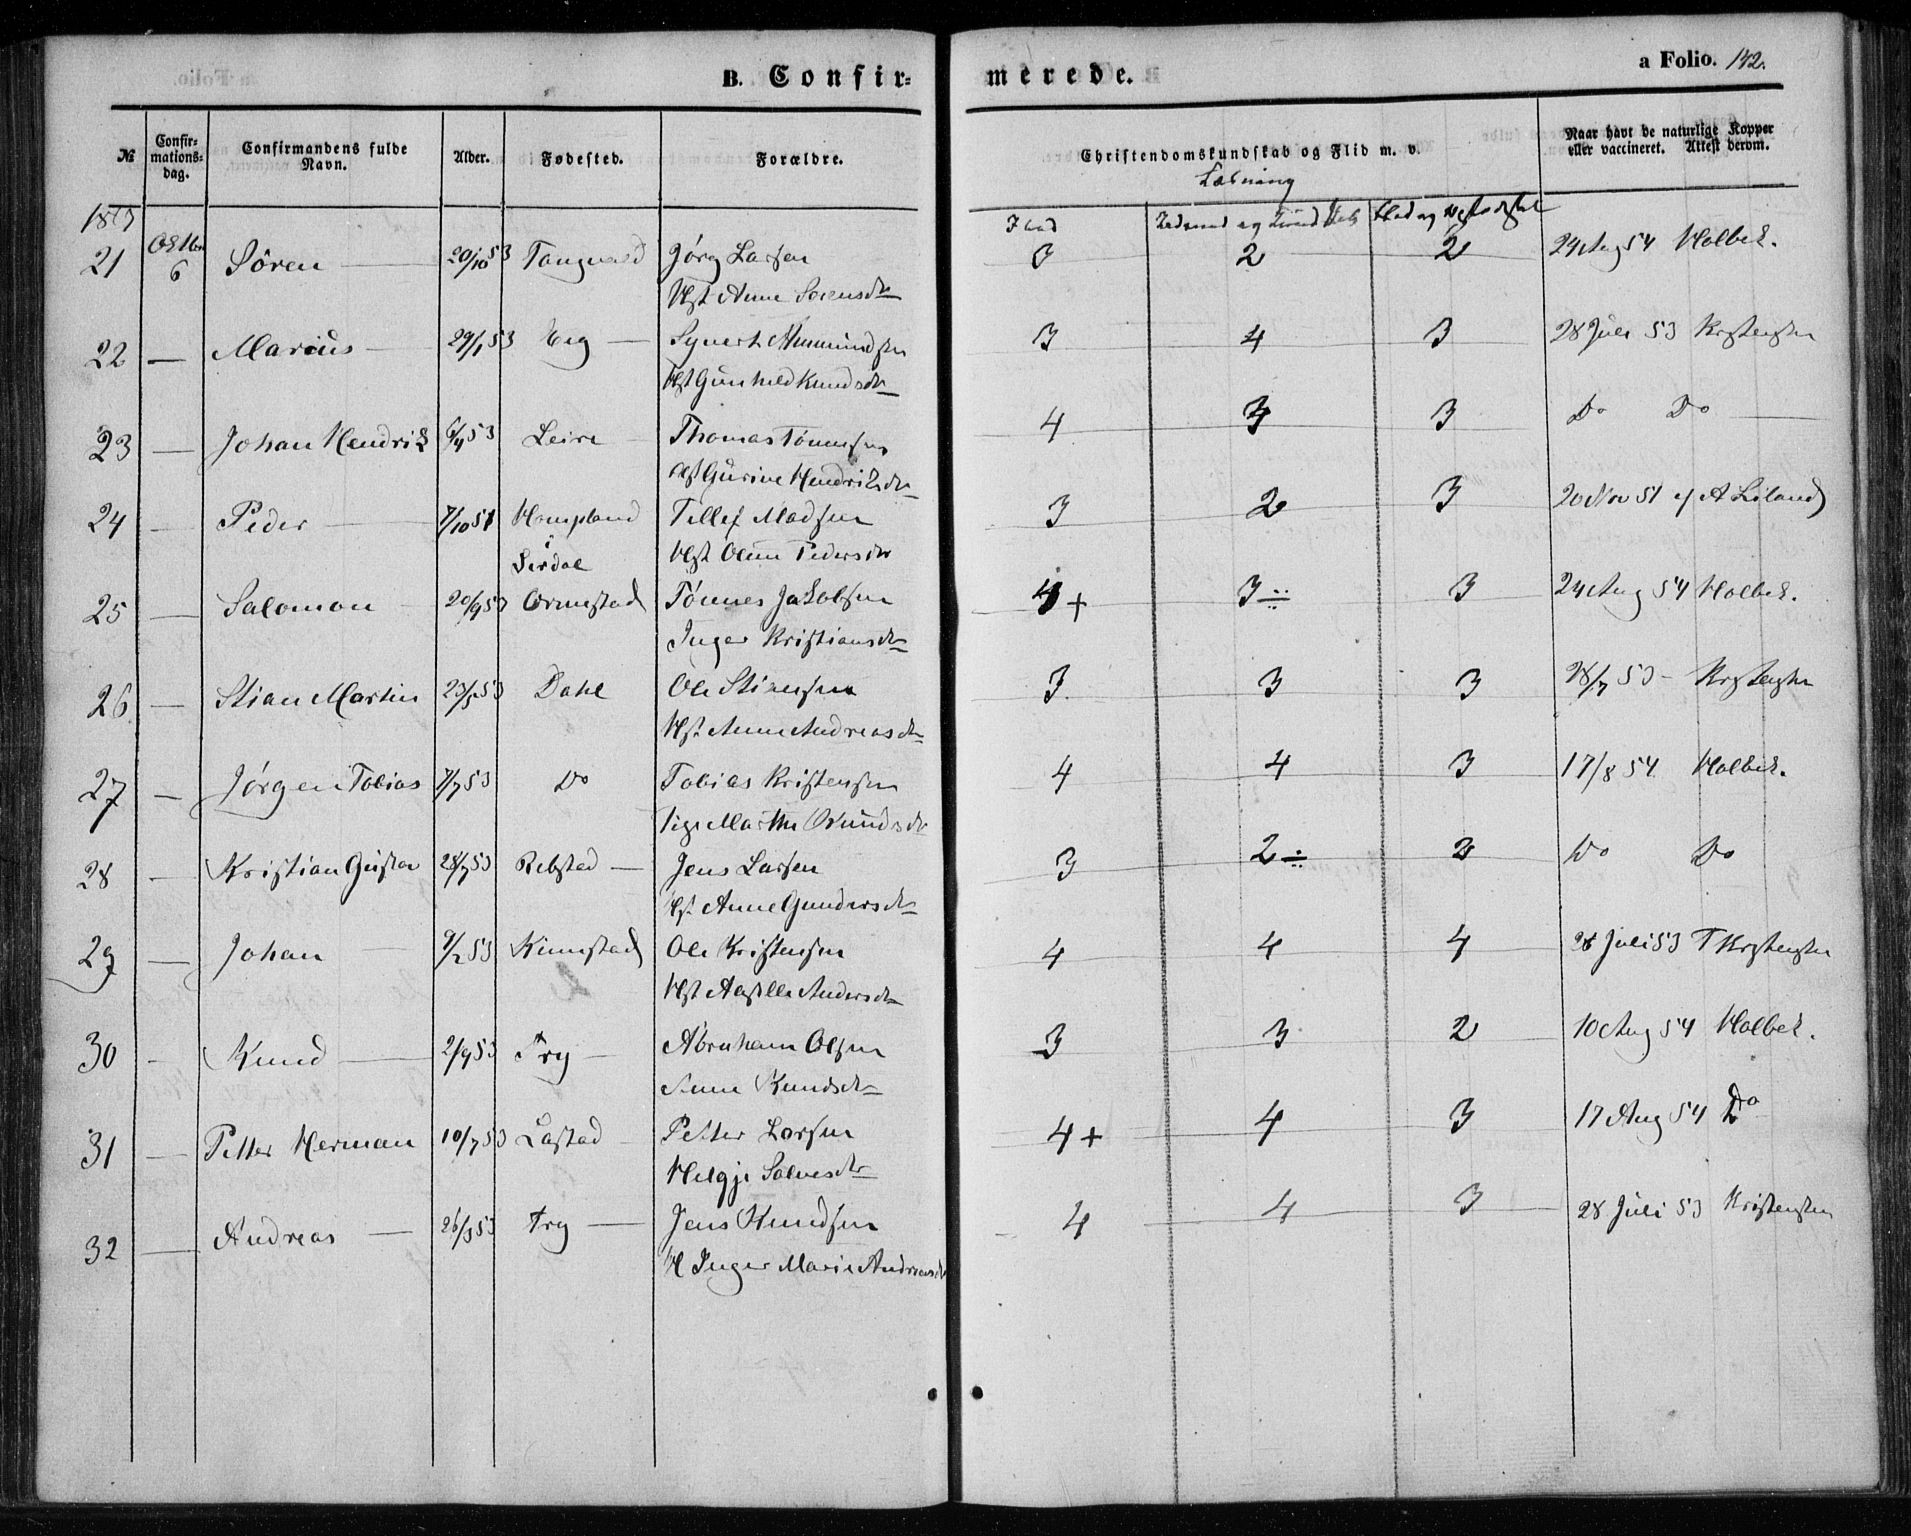 B. Confir=
merede.
a Folio. 142.
№
Confir-
mations-
dag.
Confirmandens fulde
Navn.
Alder.
Fødested.
Forældre.
Christendomskundskab og Flid m. v.
Naar havt de naturlige Kopper
eller vaccineret. Attest derom.
Læsning
1867
Flid
21 6 Sören 20/10 53 Jörg Larsen 3 2 2 24 Aug 54 Holbek.
Hst Anne Sorensdr
22 — Marius 29/1 53 Eeg Syvert Ammundsen 3 4 3 28 Juli 53 Kristensen
Hst Gunhild Knudsdr
23 — Johan Hendrik 6/4 53 Leire Thomas Tönnesen 4 3 3 Do Do
Hst Gurine Hendriksdr
24 — Peder 7/10 51 Hompland Tellef Madsen 3 2 3 20 Nov 51 af A Liland
i Sirdal Hst Olene Pedersdr
25 — Salomon 20/9 53 Ormestad Tönnes Jakobsen 4+ 3÷ 3 24 Aug 54 Holbek.
Inger Kristiansdr
26 — Stian Martin 23/5 53 Dahl Ole Stiansen 3 3 3 28/7 53 - Kristensen
Hst. Anne Andreasdr
27 — Jörgen Tobias 7/7 53 Do Tobias Kristensen 4 4 3 17/8 54 Holbek.
Pige Marthe Osmundsdr
28 — Kristian Gustav 28/7 53 Rebstad Jens Larsen 3 2÷ 3 Do Do
Hst. Anne Gundersdr
29 — Johan 9/2 53 Rimestad Ole Kristensen 4 4 4 28 Juli 53 T Kristensen
Hst Andersdr
30 - Knud 2/9 53 Try Abraham Olsen 3 3 2 10 Aug 54 Holbek.
Anne Knudsdr
31 — Petter Herman 10/7 53 Lastad Petter Larsen 4+ 4 3 17 Aug 54 Do
Helgje Salvesdr
32 — Andreas 26/3 53 Try Jens Knudsen 4 4 3 28 Juli 53 Kristensen
H Inger Marie Andreasdr